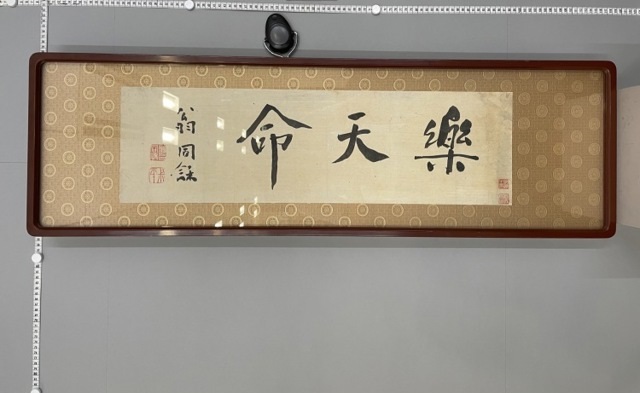 樂天命
翁同龢